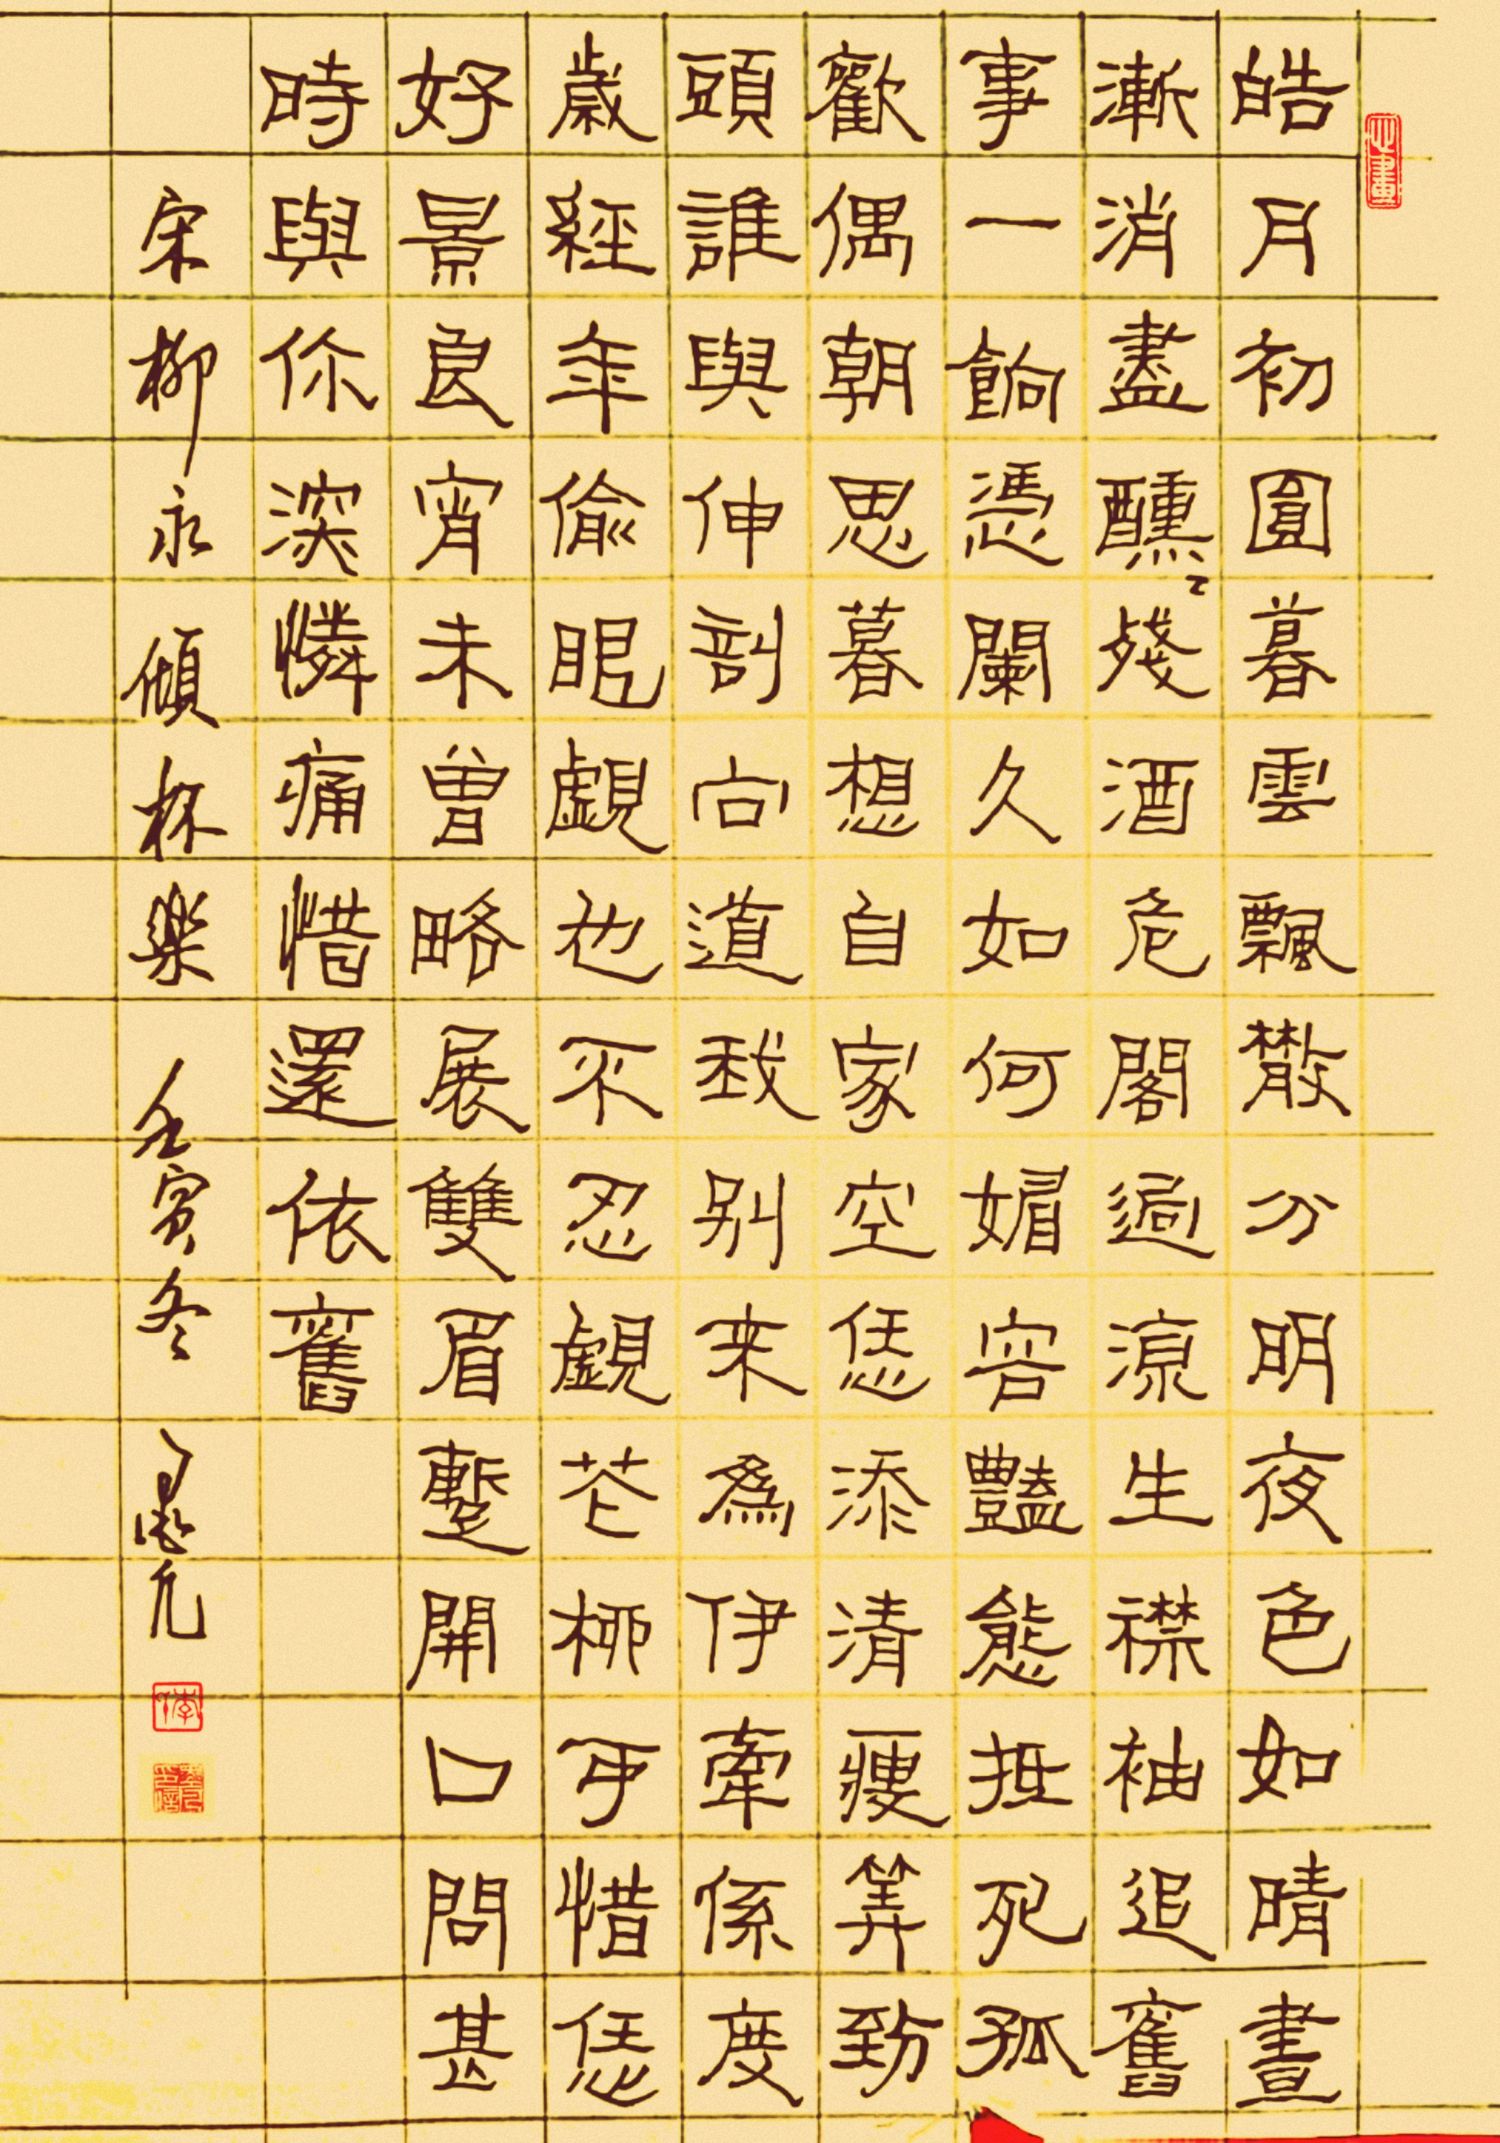 皓月初圓暮雲飄散分明夜色如晴晝
漸消盡醺〻殘酒危閣逈涼生襟袖追舊
事一餉憑闌久如何媚容豔態抵死孤
歡偶朝思暮想自家空恁添清瘦算到
頭誰與伸剖向道我別来為伊牽係度
歲經年偷眼覷也不忍覷花柳可惜恁
好景良宵未曾略展雙眉暫開口問甚
時與你深憐痛惜還依舊
宋柳永傾杯樂 壬寅冬